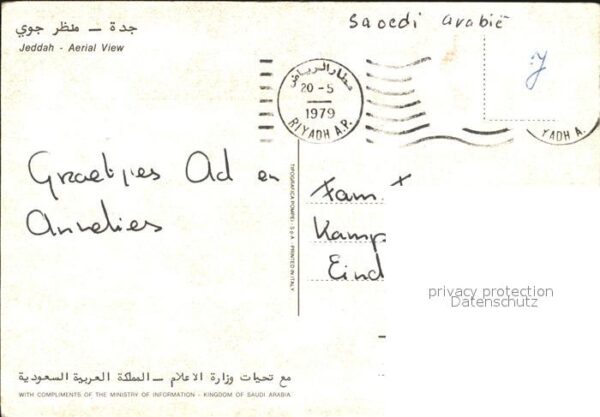 Saoedi arabië
جدة – منظر جوي
Jeddah - Aerial View
مطار الرياض
20-5
1979
RIYADH A.P.
YADH A.
Graetjies Ad en
Annelies
Fam.
Kamp
Eind
TIPOGRAFICA POMPEI - S.p.A. - PRINTED IN ITALY
privacy protection
Datenschutz
مع تحيات وزارة الاعلام – المملكة العربية السعودية
WITH COMPLIMENTS OF THE MINISTRY OF INFORMATION - KINGDOM OF SAUDI ARABIA